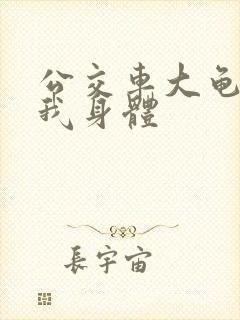 公交车大龟
我身體
長宇宙